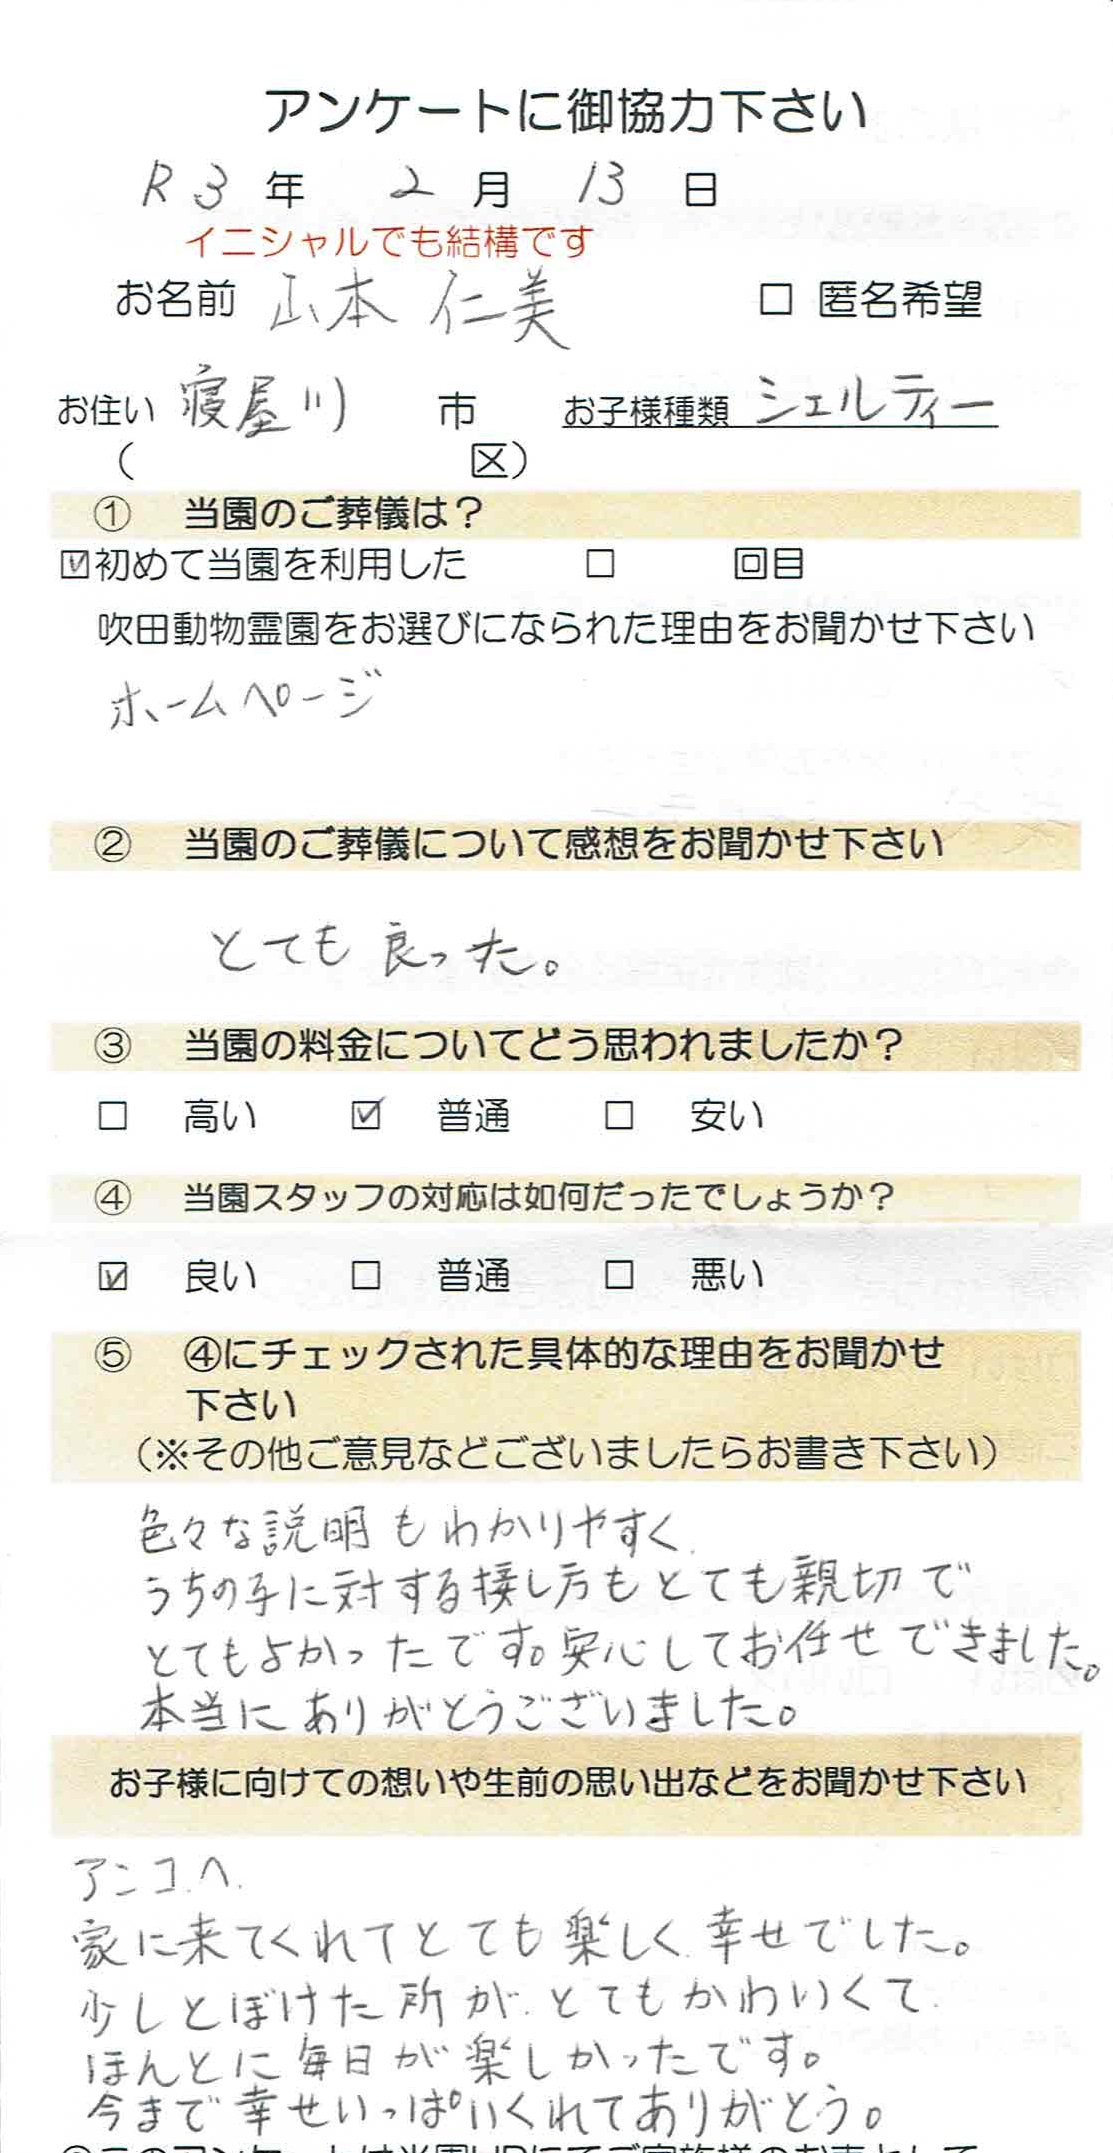 アンケートに御協力下さい
R3年 2月 13日
イニシャルでも結構です
お名前 山本 仁美 □ 匿名希望
お住い 寝屋川 市 お子様種類 シェルティー
( 区)
① 当園のご葬儀は？
☑初めて当園を利用した □ 回目
吹田動物霊園をお選びになられた理由をお聞かせ下さい
ホームページ
② 当園のご葬儀について感想をお聞かせ下さい
とても良った。
③ 当園の料金についてどう思われましたか？
□ 高い ☑ 普通 □ 安い
④ 当園スタッフの対応は如何だったでしょうか？
☑ 良い □ 普通 □ 悪い
⑤ ④にチェックされた具体的な理由をお聞かせ
下さい
（※その他ご意見などございましたらお書き下さい）
色々な説明もわかりやすく
うちの子に対する接し方もとても親切で
とてもよかったです。安心してお任せできました。
本当にありがとうございました。
お子様に向けての想いや生前の思い出などをお聞かせ下さい
アンコへ
家に来てくれてとても楽しく幸せでした。
少しとぼけた所が、とてもかわいくて
ほんとに毎日が楽しかったです。
今まで幸せいっぱいくれてありがとう。